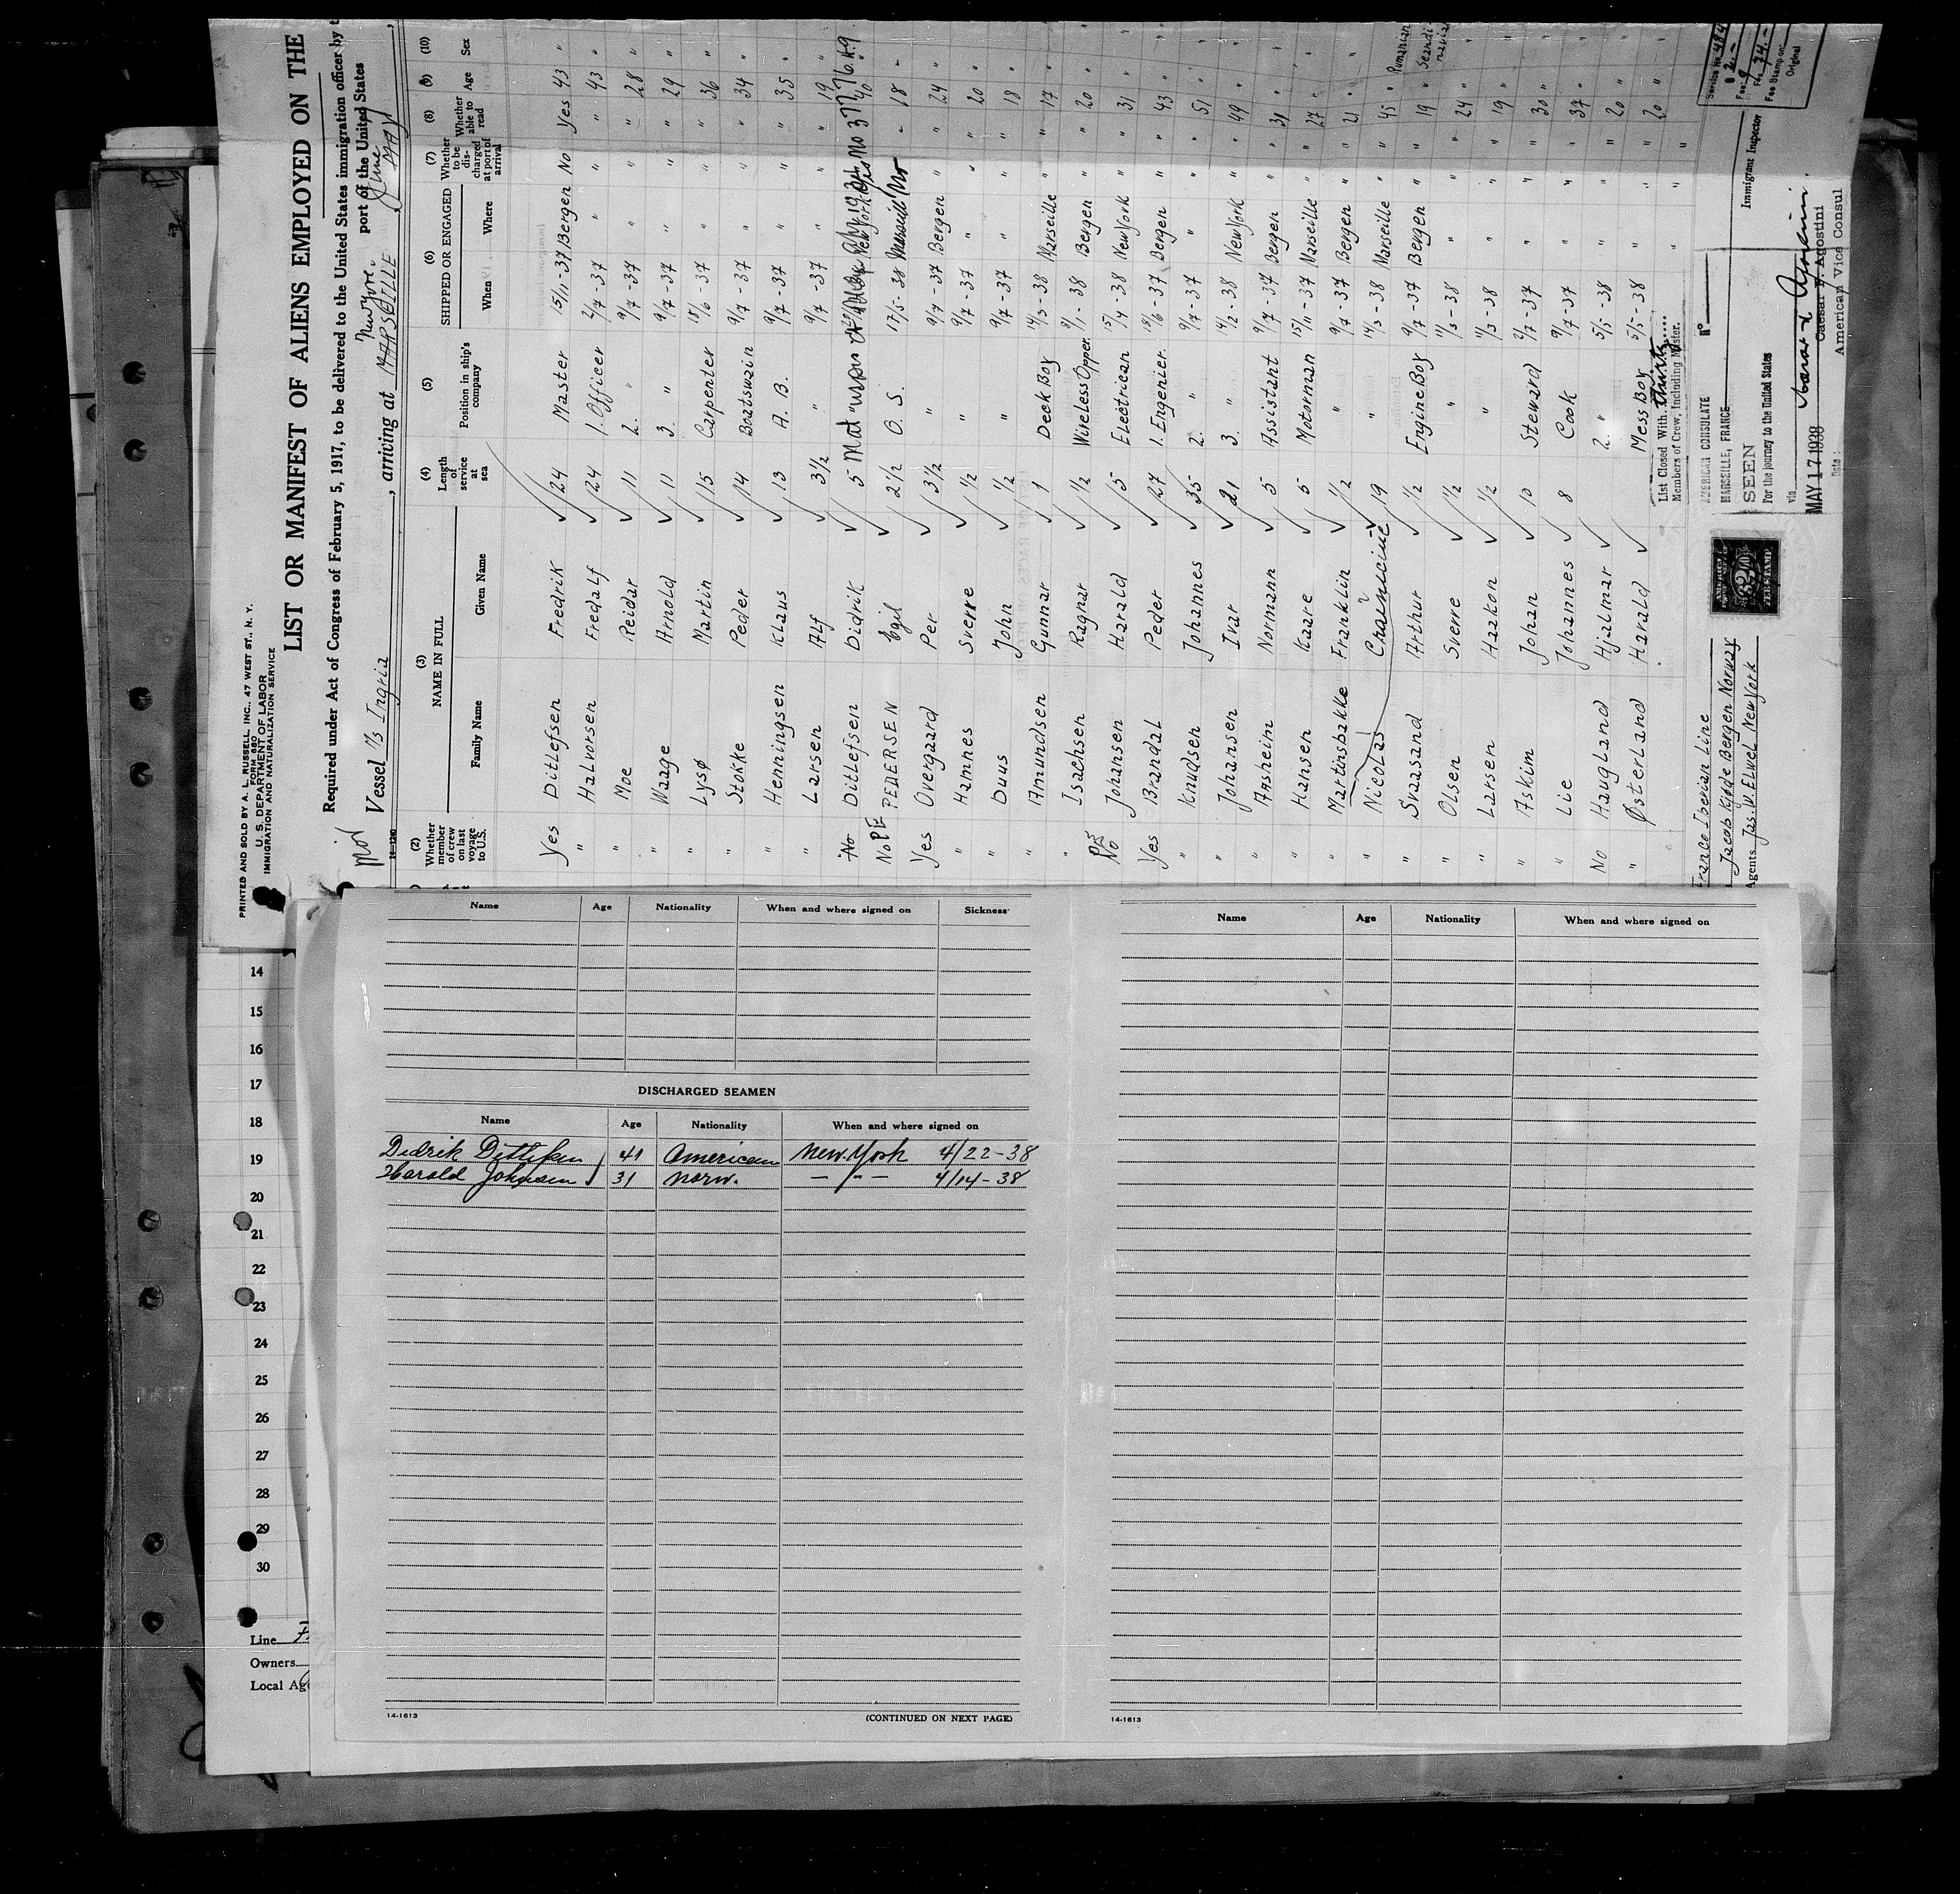 PRINTED AND SOLD BY A. L. RUSSELL, INC., 47 WEST ST., N. Y.
FORM 680
U. S. DEPARTMENT OF LABOR
IMMIGRATION AND NATURALIZATION SERVICE
LIST OR MANIFEST OF ALIENS EMPLOYED ON THE
Required under Act of Congress of February 5, 1917, to be delivered to the United States immigration officer by t
port of the United States
New York June
Vessel M/S Ingria, arriving at MARSEILLE, MAY
14-1240
(2) Whether member of crew on last voyage to U.S. (3) NAME IN FULL Family Name Given Name (4) Length of service at sea (5) Position in ship's company (6) SHIPPED OR ENGAGED When Where (7) Whether to be discharged at port of arrival (8) Whether able to read (9) Age (10) Sex
Yes Ditlefsen Fredrik 24 Master 15/11-37 Bergen No Yes 43 "
" Halvorsen Fredalf 24 1. Officer 2/7-37 " " " 43 "
" Moe Reidar 11 2. " 9/7-37 " " " 28 "
" Waage Arnold 11 3. " 9/7-37 " " " 29 "
" Lysø Martin 15 Carpenter 18/6-37 " " " 36 "
" Stokke Peder 14 Boatswain 9/7-37 " " " 34 "
" Henningsen Klaus 13 A. B. 9/7-37 " " " 35 "
" Larsen Alf 3½ " 9/7-37 " " " 19 "
No Ditlefsen Didrik 5 New York 40
No PEDERSEN Egil 2½ O. S. 17/5-38 Marseille No " 18 "
Yes Overgaard Per 3½ " 9/7-37 Bergen " " 24 "
" Hamnes Sverre ½ " 9/7-37 " " " 20 "
" Duus John ½ " 9/7-37 " " " 18 "
" Amundsen Gunnar 1 Deck Boy 14/3-38 Marseille " " 17 "
" Isachsen Ragnar 1½ Wireless Opper. 3/1-38 Bergen " " 20 "
No Johansen Harald 5 Electrican 15/4-38 New York " " 31 "
Yes Brandal Peder 27 1. Engenier. 18/6-37 Bergen " " 43 "
" Knudsen Johannes 35 2. " 9/7-37 " " " 51 "
" Johansen Ivar 21 3. " 14/2-38 New York " " 49 "
" Aasheim Normann 5 Assistant 9/7-37 Bergen " " 31 "
" Hansen Kaare 5 Motorman 15/11-37 Marseille " " 27 "
" Martinsbakke Franklin 1½ " 9/7-37 Bergen " " 21 "
" Nicolas Crainiciuc 19 " 14/3-38 Marseille " " 45 " Rumanian
" Svaasand Arthur ½ Engine Boy 9/7-37 Bergen " " 19 " Scandinavia
" Olsen Sverre ½ " 11/3-38 " " " 24 "
" Larsen Haakon ½ " 11/3-38 " " " 19 "
" Askim Johan 10 Steward 2/7-37 " " " 30 "
" Lie Johannes 8 Cook 9/7-37 " " " 37 "
No Haugland Hjalmar 2. " 5/5-38 " " " 20 "
" Østerland Harald Mess Boy 5/5-38 " " " 20 "
List Closed With Thirty
Members of Crew, Including Master.
AMERICAN CONSULATE
MARSEILLE, FRANCE
SEEN
For the journey to the United States
via
MAY 17 1938
Date:
Caesar F. Agostini
American Vice Consul
Immigrant Inspector
Service No 484
Fee Stamp on
Original
Franco Iberian Line
Jacob Kjøde Bergen Norway
Agents Jas. W. Elwel New York
Name Age Nationality When and where signed on Sickness
DISCHARGED SEAMEN
Name Age Nationality When and where signed on
Didrik Ditlefsen 41 American New York 4/22-38
Harold Johnsen 31 Norw. — " — 4/14-38
14-1613
(CONTINUED ON NEXT PAGE)
Name Age Nationality When and where signed on
14-1613
14
15
16
17
18
19
20
21
22
23
24
25
26
27
28
29
30
Line
Owners
Local Ag